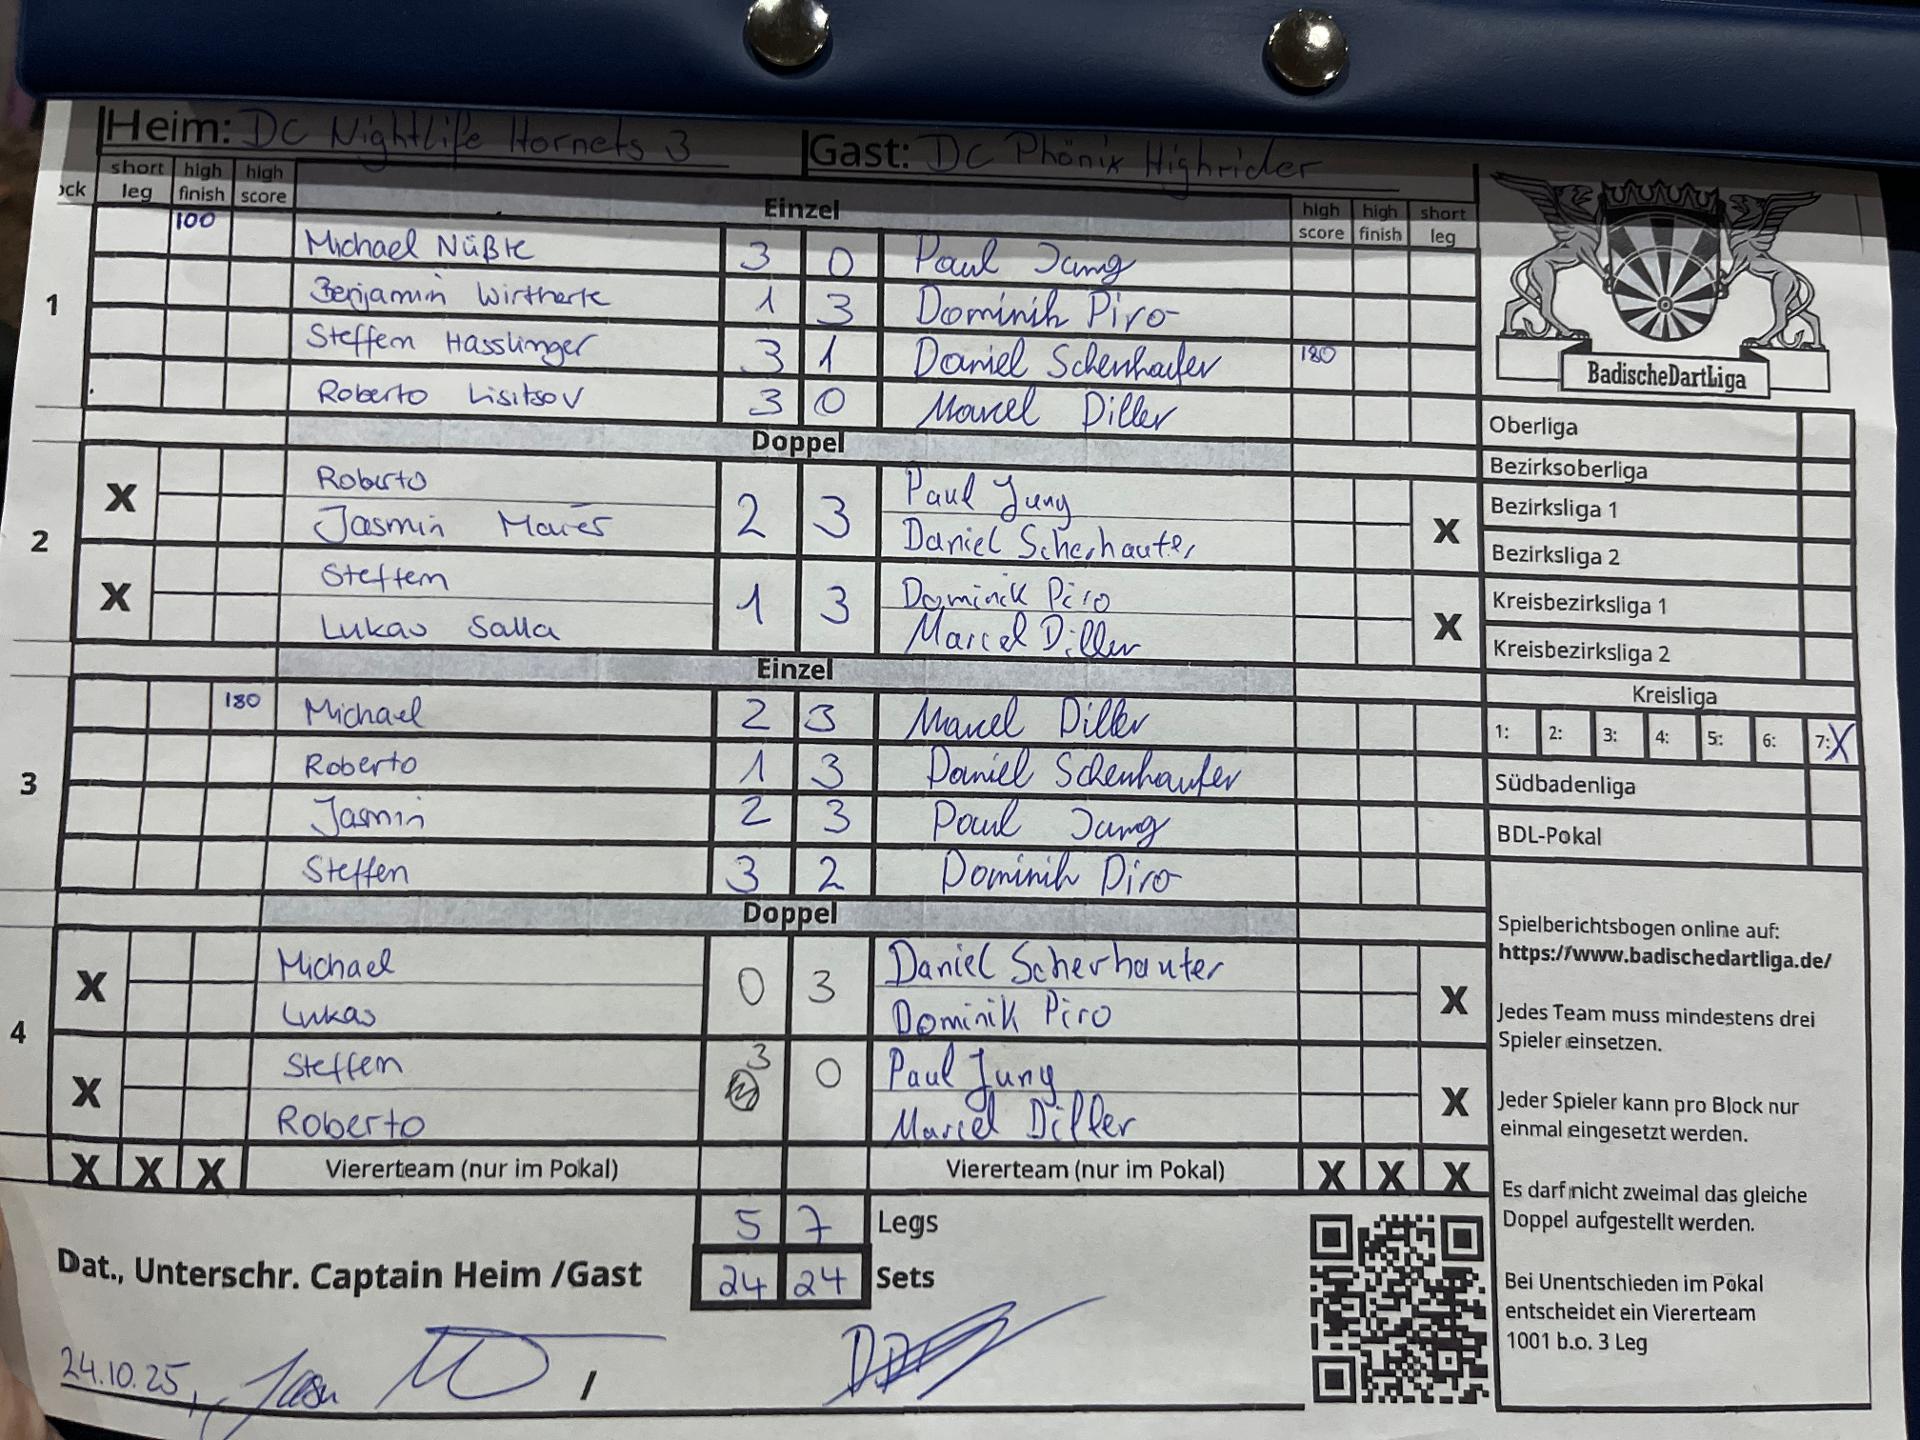 Heim: DC Nightlife Hornets 3 Gast: DC Phönix Highrider
ock short leg high finish high score Einzel high score high finish short leg
1
100 Michael Nüßle 3 0 Paul Jung
Benjamin Wirtherle 1 3 Dominik Piro
Steffen Hasslinger 3 1 Daniel Scherhaufer 180
Roberto Lisitsov 3 0 Marcel Diller
Doppel
2
X Roberto 2 3 Paul Jung X
Jasmin Daniel Scherhaufer
X Steffen 1 3 Dominik Piro X
Lukas Salla Marcel Diller
Einzel
3
180 Michael 2 3 Marcel Diller
Roberto 1 3 Daniel Scherhaufer
Jasmin 2 3 Paul Jung
Steffen 3 2 Dominik Piro
Doppel
4
X Michael 0 3 Daniel Scherhaufer X
Lukas Dominik Piro
X Steffen 3 0 Paul Jung X
Roberto Marcel Diller
X X X Viererteam (nur im Pokal) Viererteam (nur im Pokal) X X X
5 7 Legs
24 24 Sets
Dat., Unterschr. Captain Heim /Gast
24.10.25, /
BadischeDartLiga
Oberliga
Bezirksoberliga
Bezirksliga 1
Bezirksliga 2
Kreisbezirksliga 1
Kreisbezirksliga 2
Kreisliga
1: 2: 3: 4: 5: 6: 7: X
Südbadenliga
BDL-Pokal
Spielberichtsbogen online auf:
https://www.badischedartliga.de/
Jedes Team muss mindestens drei
Spieler einsetzen.
Jeder Spieler kann pro Block nur
einmal eingesetzt werden.
Es darf nicht zweimal das gleiche
Doppel aufgestellt werden.
Bei Unentschieden im Pokal
entscheidet ein Viererteam
1001 b.o. 3 Leg